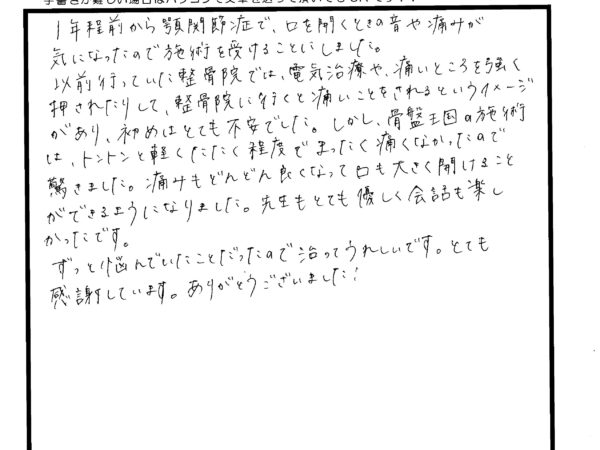 1年程前から顎関節症で、口を開くときの音や痛みが
気になったので施術を受けることにしました。
以前行っていた整骨院では、電気治療や、痛いところを強く
押されたりして、整骨院に行くと痛いことをされるというイメージ
があり、初めはとても不安でした。しかし、骨盤王国の施術
は、トントンと軽くたたく程度でまったく痛くなかったので
驚きました。痛みもどんどん良くなって口も大きく開けること
ができるようになりました。先生もとても優しく会話も楽し
かったです。
ずっと悩んでいたことだったので治ってうれしいです。とても
感謝しています。ありがとうございました!